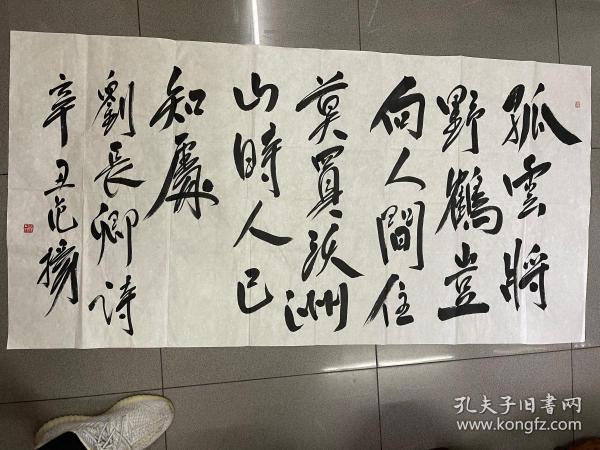 孤雲將
野鶴豈
向人間住
莫買沃洲
山時人已
知處
劉長卿詩
辛丑范揚
孔夫子旧書网
www.kongfz.com